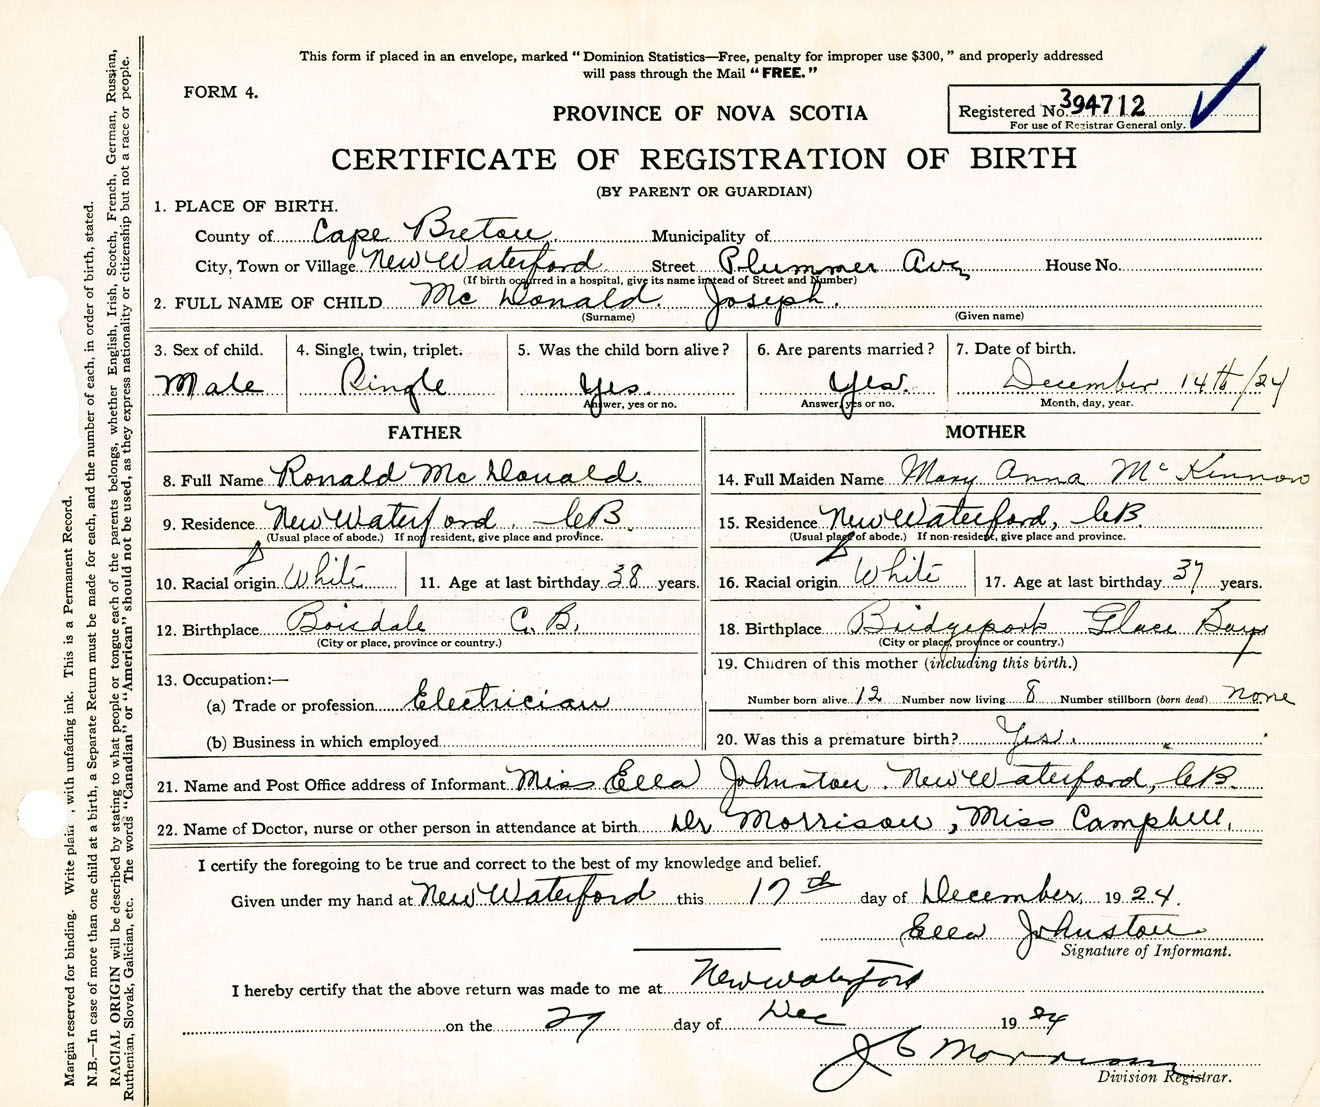 This form if placed in an envelope, marked “Dominion Statistics—Free, penalty for improper use $300,” and properly addressed
will pass through the Mail “FREE.”
FORM 4.
PROVINCE OF NOVA SCOTIA
Registered No. 394712
For use of Registrar General only.
CERTIFICATE OF REGISTRATION OF BIRTH
(BY PARENT OR GUARDIAN)
1. PLACE OF BIRTH.
County of Cape Breton Municipality of
City, Town or Village New Waterford Street Plummer Ave House No.
(If birth occurred in a hospital, give its name instead of Street and Number)
2. FULL NAME OF CHILD McDonald. Joseph.
(Surname) (Given name)
3. Sex of child. 4. Single, twin, triplet. 5. Was the child born alive? 6. Are parents married? 7. Date of birth.
Male Single Yes. Yes. December 14th/24
Answer, yes or no. Answer, yes or no. Month, day, year.
FATHER MOTHER
8. Full Name Ronald McDonald. 14. Full Maiden Name Mary Anna McKinnon
9. Residence New Waterford. C.B. 15. Residence New Waterford, C.B.
(Usual place of abode.) If not resident, give place and province. (Usual place of abode.) If non-resident, give place and province.
10. Racial origin White 11. Age at last birthday 38 years. 16. Racial origin White 17. Age at last birthday 37 years.
12. Birthplace Boisdale C.B. 18. Birthplace Bridgeport Glace Bay
(City or place, province or country.) (City or place, province or country.)
13. Occupation:— 19. Children of this mother (including this birth.)
(a) Trade or profession Electrician Number born alive 12 Number now living 8 Number stillborn (born dead) none
(b) Business in which employed 20. Was this a premature birth? Yes.
21. Name and Post Office address of Informant Miss Ella Johnston. New Waterford, C.B.
22. Name of Doctor, nurse or other person in attendance at birth Dr Morrison, Miss Campbell.
I certify the foregoing to be true and correct to the best of my knowledge and belief.
Given under my hand at New Waterford this 17th day of December, 1924.
Ella Johnston
Signature of Informant.
I hereby certify that the above return was made to me at New Waterford
on the 27 day of Dec 1924
J C Morrison
Division Registrar.
Margin reserved for binding. Write plain, with unfading ink. This is a Permanent Record.
N.B.—In case of more than one child at a birth, a Separate Return must be made for each, and the number of each, in order of birth, stated.
RACIAL ORIGIN will be described by stating to what people or tongue each of the parents belongs, whether English, Irish, Scotch, French, German, Russian,
Ruthenian, Slovak, Galician, etc. The words “Canadian” or “American” should not be used, as they express nationality or citizenship but not a race or people.